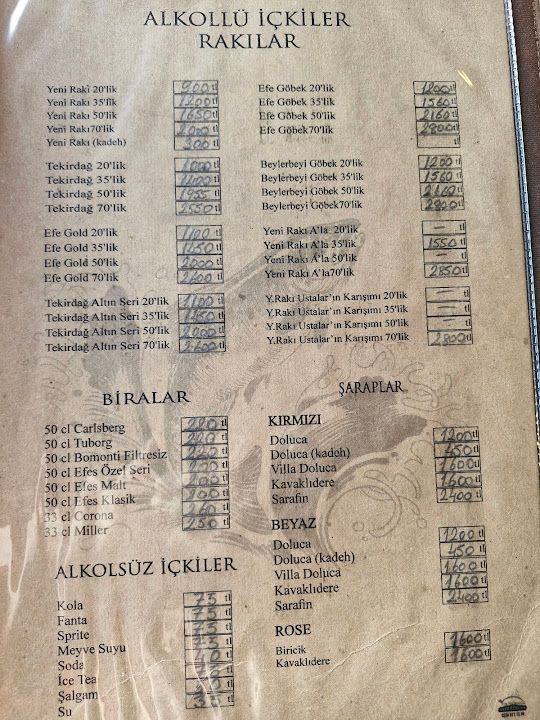 ALKOLLÜ İÇKİLER
RAKILAR
Yeni Rakı 20'lik 900 tl
Yeni Rakı 35'lik 1200 tl
Yeni Rakı 50'lik 1650 tl
Yeni Rakı70'lik 2000 tl
Yeni Rakı (kadeh) 300 tl
Tekirdağ 20'lik 1000 tl
Tekirdağ 35'lik 1400 tl
Tekirdağ 50'lik 1955 tl
Tekirdağ 70'lik 2550 tl
Efe Gold 20'lik 1100 tl
Efe Gold 35'lik 1450 tl
Efe Gold 50'lik 2000 tl
Efe Gold 70'lik 2600 tl
Tekirdağ Altın Seri 20'lik 1100 tl
Tekirdağ Altın Seri 35'lik tl
Tekirdağ Altın Seri 50'lik 2200 tl
Tekirdağ Altın Seri 70'lik 2600 tl
Efe Göbek 20'lik 1200 tl
Efe Göbek 35'lik 1560 tl
Efe Göbek 50'lik 2160 tl
Efe Göbek70'lik 2800 tl
tl
Beylerbeyi Göbek 20'lik 1200 tl
Beylerbeyi Göbek 35'lik 1560 tl
Beylerbeyi Göbek 50'lik 2160 tl
Beylerbeyi Göbek70'lik 2800 tl
Yeni Rakı A'la 20'lik — tl
Yeni Rakı A'la 35'lik 1550 tl
Yeni Rakı A'la 50'lik — tl
Yeni Rakı A'la70'lik 2850 tl
Y.Rakı Ustalar'ın Karışımı 20'lik — tl
Y.Rakı Ustalar'ın Karışımı 35'lik — tl
Y.Rakı Ustalar'ın Karışımı 50'lik — tl
Y.Rakı Ustalar'ın Karışımı 70'lik 2800 tl
BİRALAR
50 cl Carlsberg 220 tl
50 cl Tuborg 220 tl
50 cl Bomonti Filtresiz 240 tl
50 cl Efes Özel Seri 200 tl
50 cl Efes Malt 200 tl
50 cl Efes Klasik 200 tl
33 cl Corona 260 tl
33 cl Miller 250 tl
ALKOLSÜZ İÇKİLER
Kola 75 tl
Fanta 75 tl
Sprite 75 tl
Meyve Suyu tl
Soda 40 tl
İce Tea tl
Şalgam tl
Su tl
ŞARAPLAR
KIRMIZI
Doluca 1200 tl
Doluca (kadeh) 450 tl
Villa Doluca 1600 tl
Kavaklıdere 1600 tl
Sarafin 2400 tl
BEYAZ
Doluca 1200 tl
Doluca (kadeh) 450 tl
Villa Doluca 1600 tl
Kavaklıdere 1600 tl
Sarafin 2400 tl
ROSE
Biricik 1600 tl
Kavaklıdere 1600 tl